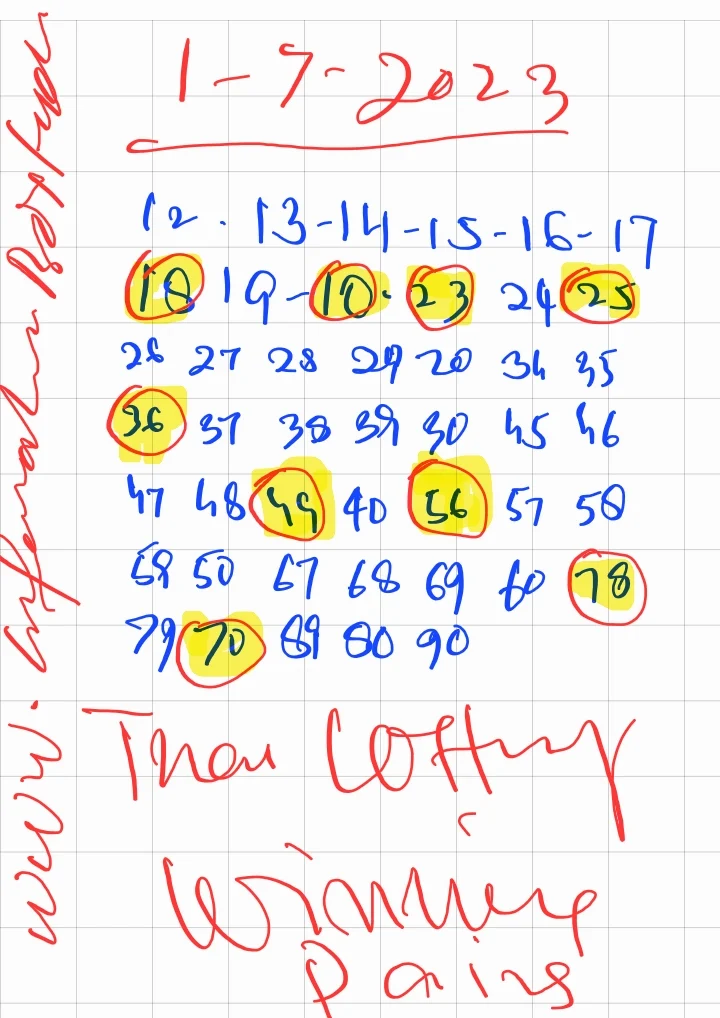 1-7-2023
12 . 13-14-15-16-17
18 19-10. 23 24 25
26 27 28 29 20 34 35
36 37 38 39 30 45 46
47 48 49 40 56 57 58
59 50 67 68 69 60 78
79 70 89 80 90
Thai Lottery
Winning
Pairs
www.